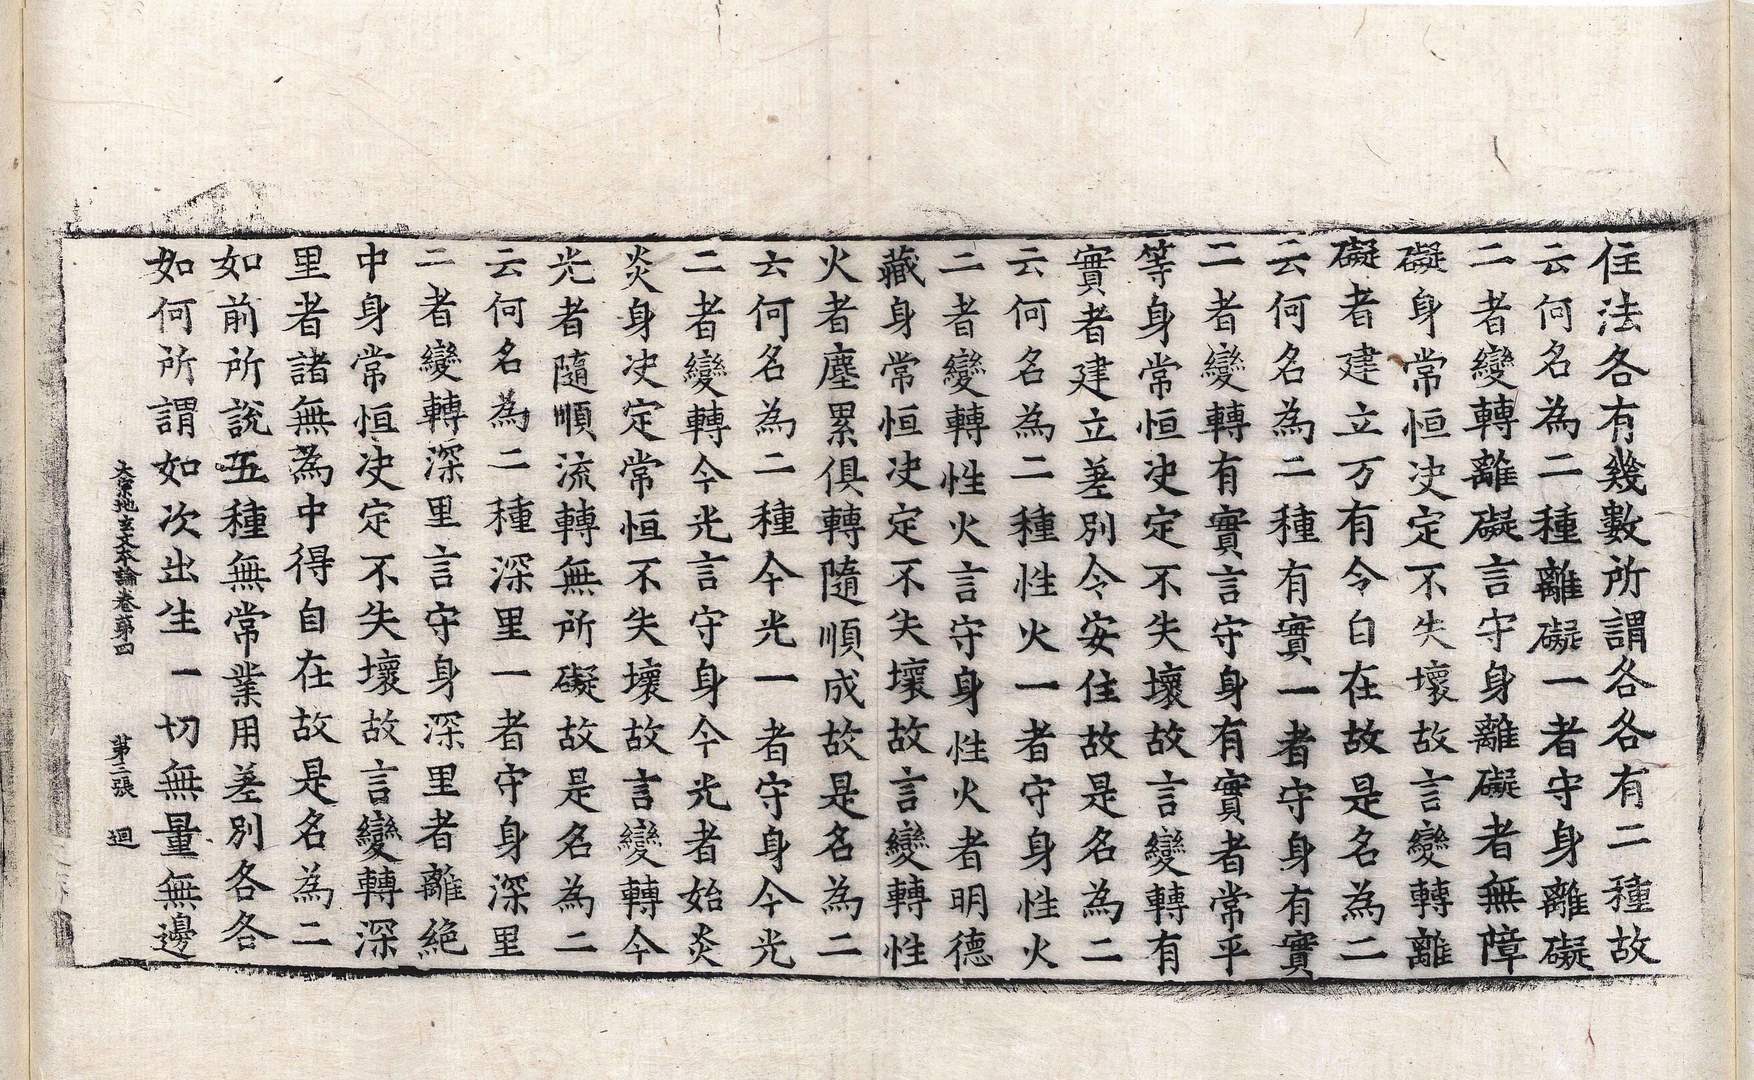 住法各有幾數所謂各各有二種故
云何名為二種離礙一者守身離礙
二者變轉離礙言守身離礙者無障
礙身常恒决定不失壞故言變轉離
礙者建立万有令自在故是名為二
云何名為二種有實一者守身有實
二者變轉有實言守身有實者常平
等身常恒决定不失壞故言變轉有
實者建立差別令安住故是名為二
云何名為二種性火一者守身性火
二者變轉性火言守身性火者明德
藏身常恒决定不失壞故言變轉性
火者塵累俱轉隨順成故是名為二
云何名為二種今光一者守身今光
二者變轉今光言守身今光者始炎
炎身决定常恒不失壞故言變轉今
光者隨順流轉無所礙故是名為二
云何名為二種深里一者守身深里
二者變轉深里言守身深里者離絶
中身常恒决定不失壞故言變轉深
里者諸無為中得自在故是名為二
如前所說五種無常業用差別各各
如何所謂如次出生一切無量無邊
大宗地玄文本論卷第四 第三張 迴